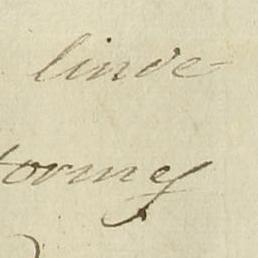 linde
tormes